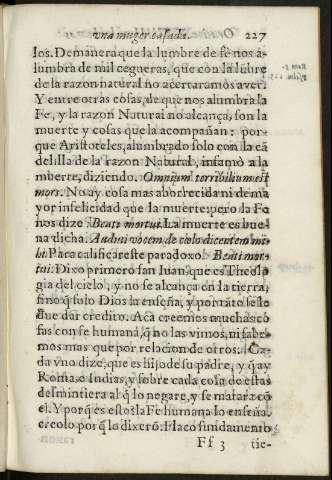 vna muger casada. 227
los. De manera que la lumbre de fè nos a-
lumbra de mil cegueras, que con la lũbre
de la razon natural no acertaramos à ver.
Y entre otras cosas, de que nos alumbra la
Fe, y la razon Natural no alcança, son la
muerte y cosas que la acompañan: por-
que Aristoteles, alumbrado solo con la cã
delilla de la razon Natural, infamò a la
muerte, diziendo. Omnium terribilium est
mors. No ay cosa mas aborrecida ni de ma
yor infelicidad que la muerte: pero la Fe
nos dize Beati mortui. La muerte es bue-
na dicha. Audiui vocem de cielo dicentem mi-
hi. Para calificar este paradoxo. Beati mor-
tui. Dixo primero san Iuan, que es Theolo
gia del cielo, y no se alcança en la tierra,
sino q̃ solo Dios la enseña, y por tãto se le
deue dar credito. Acà creemos muchas co
sas con fe humana, q̃ no las vimos, ni sabe-
mos mas que por relacion de otros. Ca-
da vno dize, que es hijo de su padre, y q̃ ay
Roma, e Indias, y sobre cada cosa de estas
desmintiera al q̃ lo negare, y se matarà cõ
el. Y porq̃ es esto? la Fe humana lo enseña.
creolo porq̃ lo dixerõ: Flaco fundamento
Ff 3 tie-